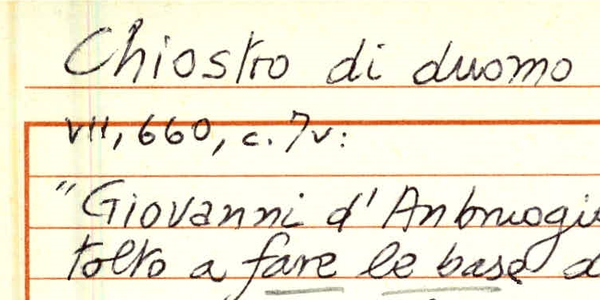 Chiostro di duomo
VII, 660, c. 7v:
"Giovanni d'Anbruogi
tolto a fare le base d